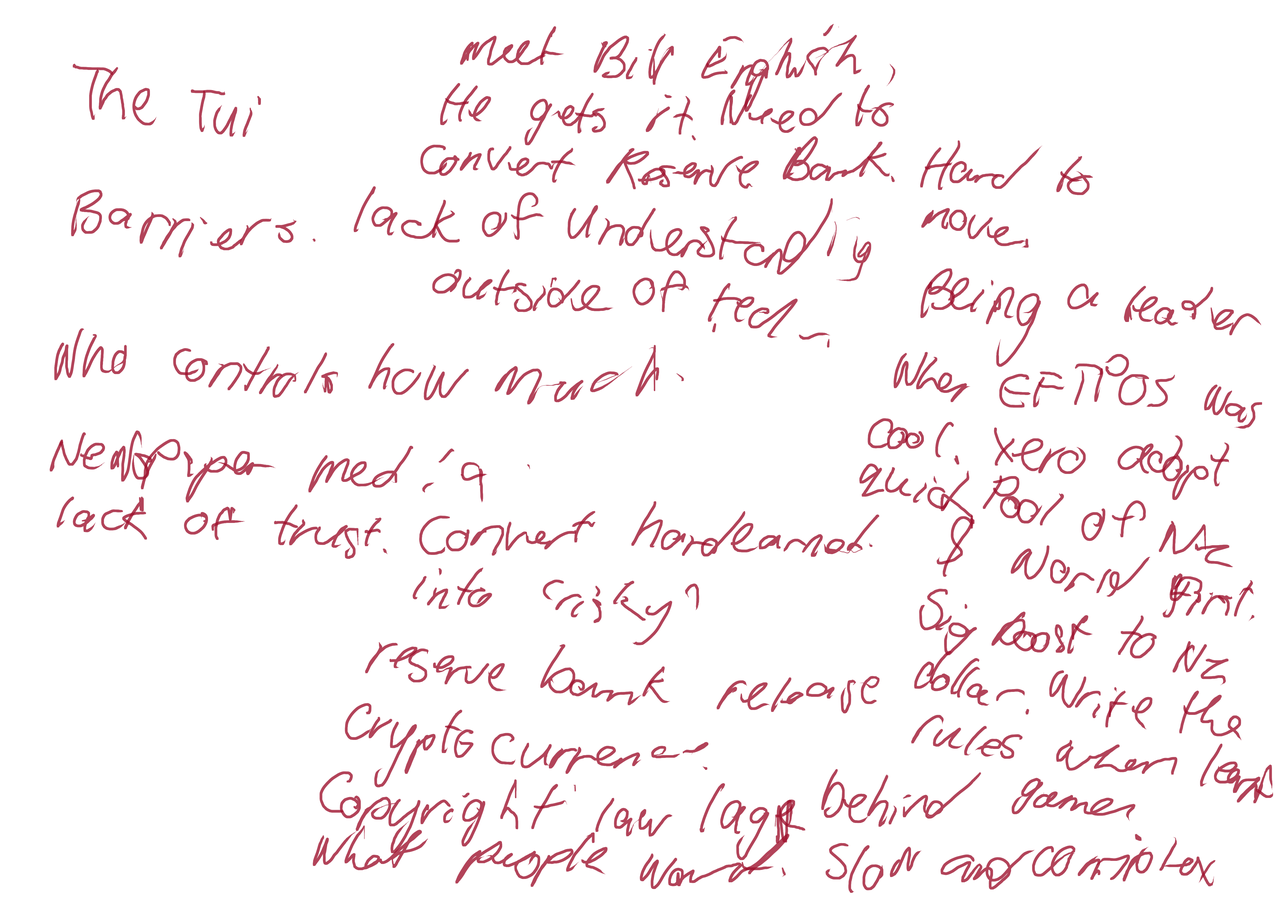 The Tui
meet Bill English,
He gets it. Need to
convert Reserve Bank. Hard to
move.
Barriers. lack of understanding
outside of tech.
Being a leader
Who controls how much.
When EFTPOS was
cool. Xero adopt
quick Pool of NZ
$ World first.
Newspaper media
lack of trust. Convert hardearned
into "risky"
Sig boost to NZ
dollar. Write the
rules when
reserve bank release
Cryptocurrency.
Copyright law lags behind
what people want. Slow and complex